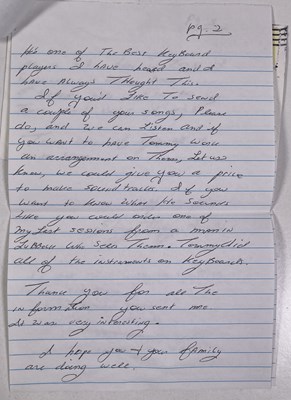 pg. 2
His one of The Best KeyBoard
players I have heard and I
have Always Thought This.
If you'd Like To send
a couple of your songs, Please
do, and we can Listen and if
you want to have Tommy work
an arrangement on Them, Let us
Know, we could give you a price
to make soundtracks. If you
want to know what He sounds
Like you could order one of
my Last sessions from a man in
Lubbock who sells Them. Tommy did
all of the instruments on KeyBoards.
Thank you for all The
information you sent me
It was very interesting.
I hope you + your family
are doing well.